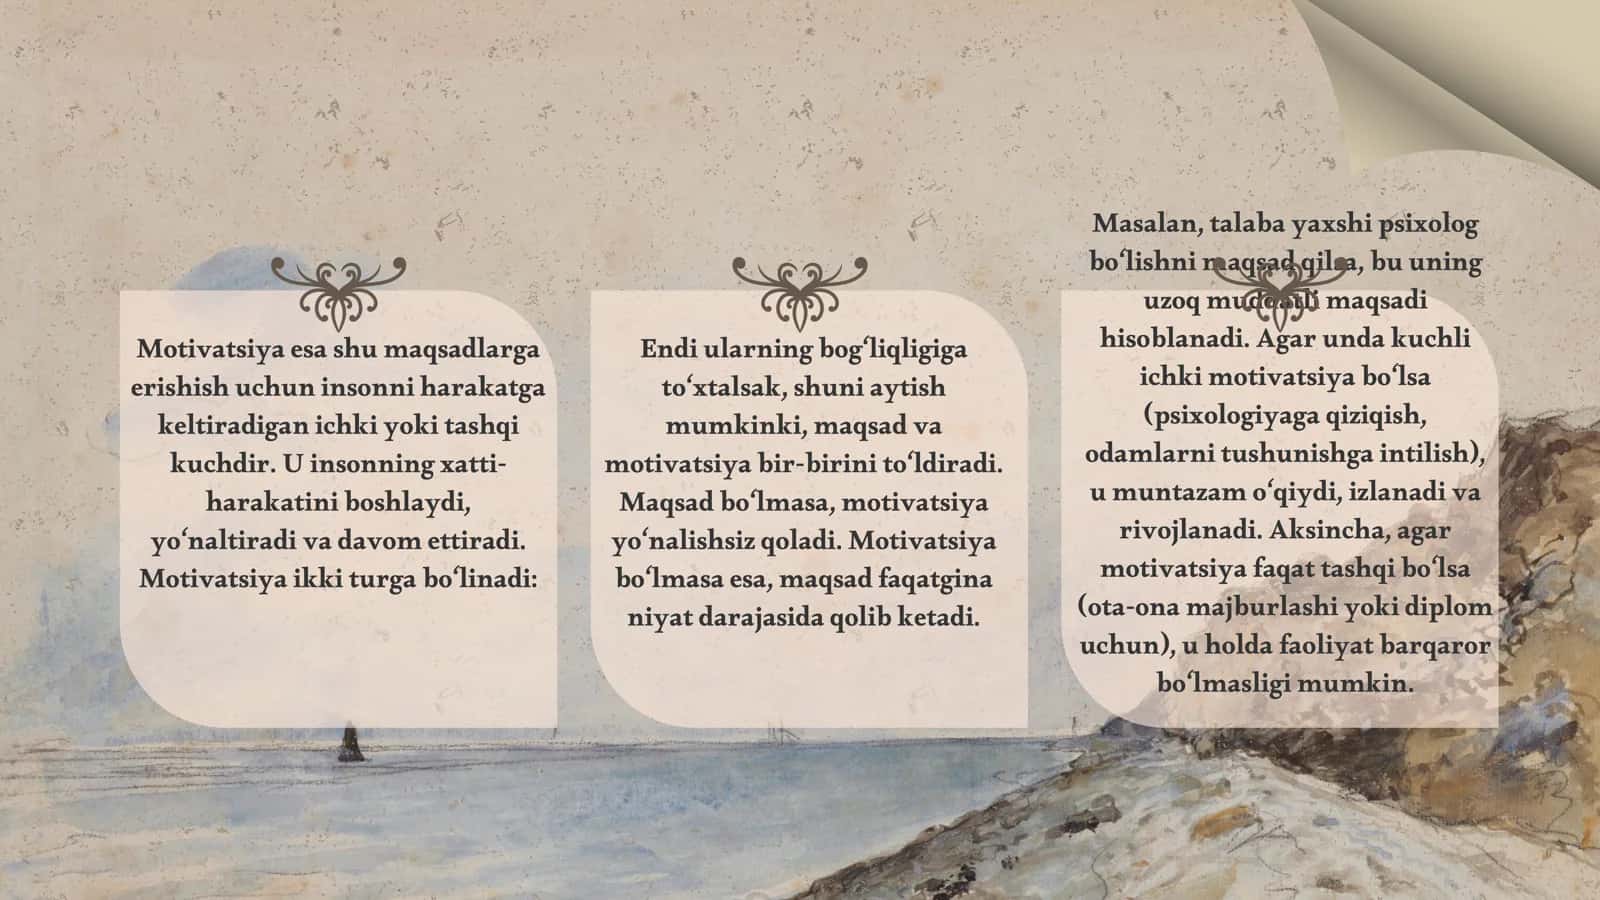 Motivatsiya esa shu maqsadlarga
erishish uchun insonni harakatga
keltiradigan ichki yoki tashqi
kuchdir. U insonning xatti-
harakatini boshlaydi,
yo‘naltiradi va davom ettiradi.
Motivatsiya ikki turga bo‘linadi:
Endi ularning bog‘liqligiga
to‘xtalsak, shuni aytish
mumkinki, maqsad va
motivatsiya bir-birini to‘ldiradi.
Maqsad bo‘lmasa, motivatsiya
yo‘nalishsiz qoladi. Motivatsiya
bo‘lmasa esa, maqsad faqatgina
niyat darajasida qolib ketadi.
Masalan, talaba yaxshi psixolog
bo‘lishni maqsad qilsa, bu uning
uzoq muddatli maqsadi
hisoblanadi. Agar unda kuchli
ichki motivatsiya bo‘lsa
(psixologiyaga qiziqish,
odamlarni tushunishga intilish),
u muntazam o‘qiydi, izlanadi va
rivojlanadi. Aksincha, agar
motivatsiya faqat tashqi bo‘lsa
(ota-ona majburlashi yoki diplom
uchun), u holda faoliyat barqaror
bo‘lmasligi mumkin.